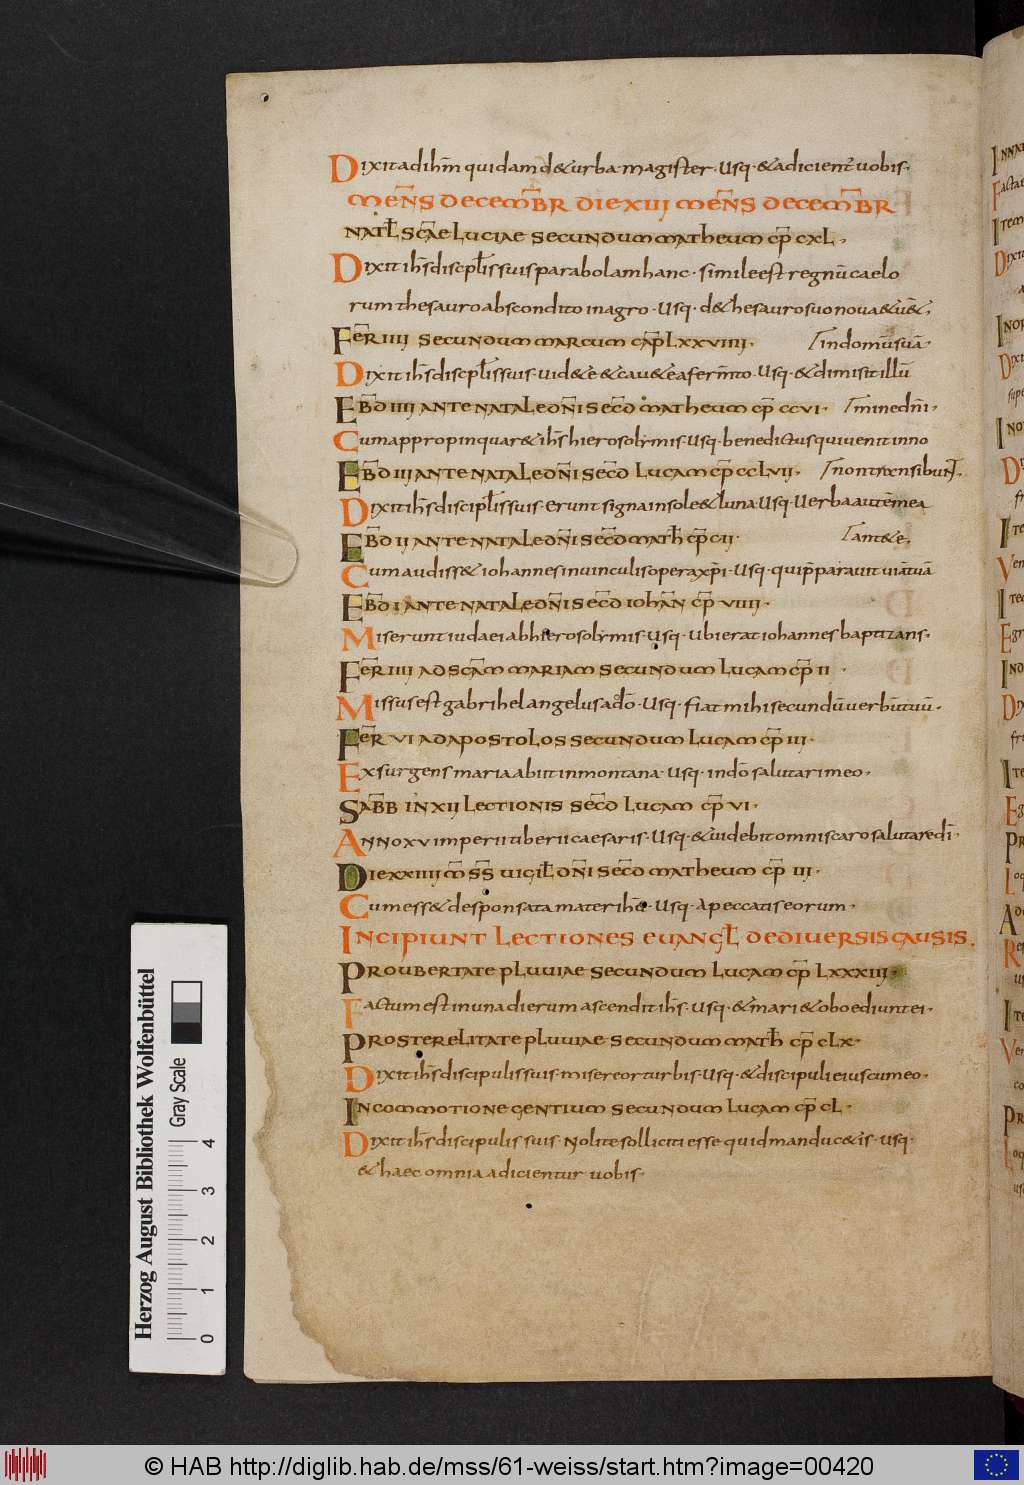 Dixit ad ihm quidam d&urba magister · Usq · &adicient uobis ·
MENS DECEMBR DIE XIII MENS DECEMBR
NATL SCAE LUCIAE SECUNDUM MATHEUM CP CXL ·
Dixit ihs discplis suis parabolam hanc · simile est regnu caelo
rum thesauro abscondito in agro · Usq · d&hesauro suo noua &u&& ·
FER IIII SECUNDUM MARCUM CAP LXXVIIII · in domu sua ·
Dixit ihs discplis suis · uid&e &cau&e a fermto · Usq · &dimisit illu
EBD IIII ANTE NATALE DNI SECD MATHEUM CP CCVI · mine dni ·
Cum appropinquar& ihs hierosolymis · Usq · benedictus qui uenit in no
EBD III ANTE NATALE DNI SECD LUCAM CP CCLVII · non transibunt ·
Dixit ihs discipulis suis · erunt signa in sole &luna · Usq · Uerba autem mea
EBD II ANTE NATALE DNI SECD MATH CP CII · ant&e ·
Cum audiss& iohannes in uinculis opera xpi · Usq · qui pparauit uia tua
EBD I ANTE NATALE DNI SECD IOHAN CP VIIII ·
Miserunt iudaei ab hierosolymis · Usq · Ubi erat iohannes baptizans ·
FER IIII AD SCAM MARIAM SECUNDUM LUCAM CP II ·
Missus est gabrihel angelus a do · Usq · fiat mihi secundu uerbu tuu ·
FER VI AD APOSTOLOS SECUNDUM LUCAM CP III ·
Exsurgens maria abiit in montana · Usq · in do salutari meo ·
SABB IN XII LECTIONIS SECD LUCAM CP VI ·
Anno xv imperii tiberii caesaris · Usq · &uidebit omnis caro salutare di ·
DIE XXIIII M SS UIGIL DNI SECD MATHEUM CP III ·
Cum ess& desponsata mater ihu · Usq · A peccatis eorum ·
INCIPIUNT LECTIONES EUANGL DE DIUERSIS CAUSIS ·
PRO UBERTATE PLUUIAE SECUNDUM LUCAM CP LXXXIII ·
Factum est in una dierum ascendit ihs · Usq · &mari &oboediunt ei ·
PRO STERELITATE PLUUIAE SECUNDUM MATH CP CLX ·
Dixit ihs discipulis suis · misereor turbis · Usq · &discipuli eius cum eo ·
IN COMMOTIONE GENTIUM SECUNDUM LUCAM CP CL ·
Dixit ihs discipulis suis · Nolite solliciti esse quid manduc&is · Usq ·
&haec omnia adicientur uobis ·
Herzog August Bibliothek Wolfenbüttel
Gray Scale
0 1 2 3 4
© HAB http://diglib.hab.de/mss/61-weiss/start.htm?image=00420